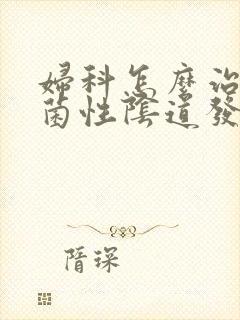 婦科怎麼治
菌性陰道發
琛